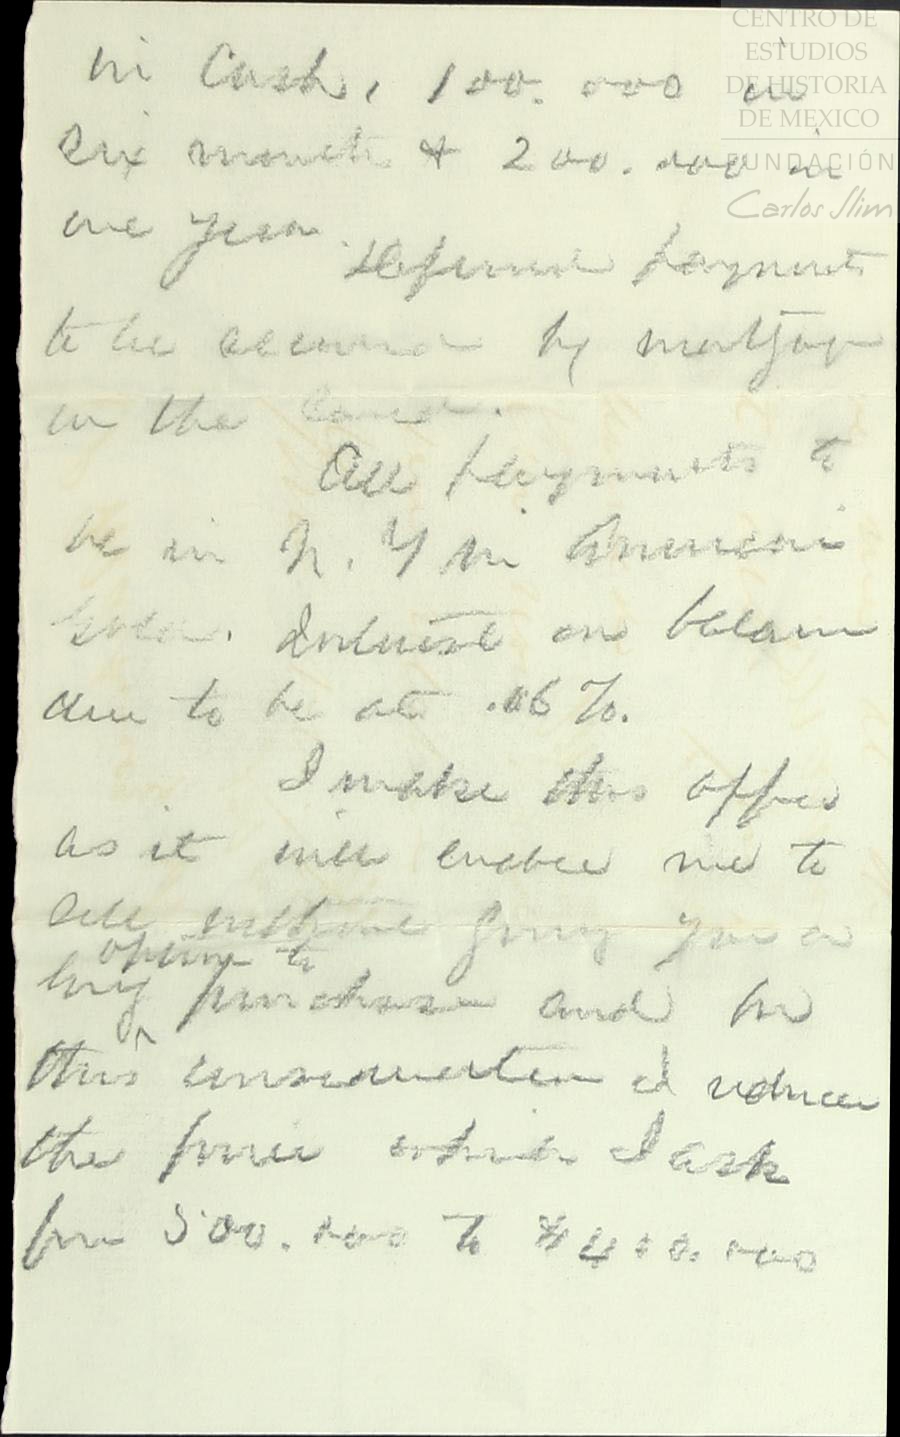 CENTRO DE
ESTUDIOS
DE HISTORIA
DE MEXICO
FUNDACIÓN
Carlos Slim
in Cash, 100.000 in
six months & 200.000 in
one year.
Deferred payments
to be secured by mortgage
on the land.
All payments to
be in N.Y in American
Gold. Interest on balance
due to be at .06%.
I make this offer
as it will enable me to
sell without giving you a
long option to purchase and for
this consideration I reduce
the price which I ask
from 500.000 to $400.000